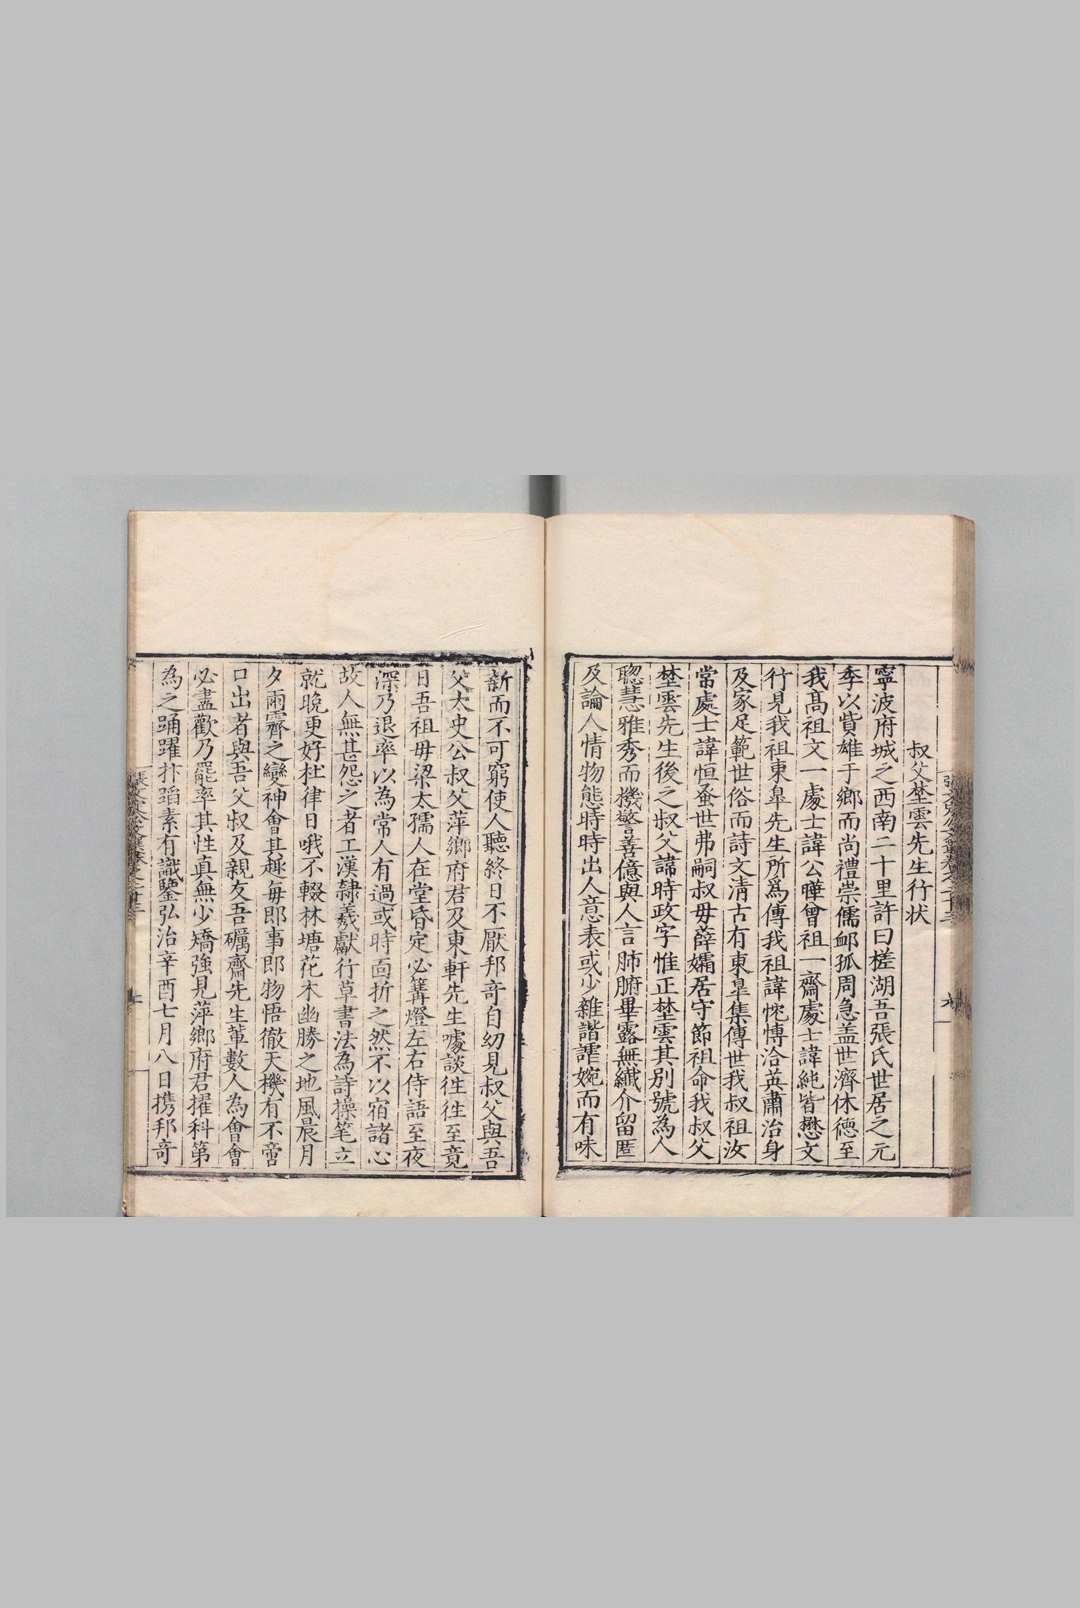 叔父埜雲先生行狀
寧波府城之西南二十里許曰槎湖吾張氏世居之元
季以貲雄于鄉而尚禮崇儒邺孤周急盖世濟休德至
我髙祖文一處士諱公曄曾祖一齋處士諱純皆懋文
行見我祖東臯先生所爲傳我祖諱博洽英肅治身
及家足範世俗而詩文淸古有東臯集傳世我叔祖汝
當處士諱恒蚤世弗嗣叔母薛孀居守節祖命我叔父
埜雲先生後之叔父諱時政字惟正埜雲其别號為人
聰慧雅秀而機警善億與人言肺腑畢露無纎介留匿
及論人情物態時時出人意表或少雜諧謔婉而有味
新而不可窮使人聽終日不厭邦竒自幼見叔父與吾
父太史公叔父萍鄉府君及東軒先生噱談徃徃至竟
日吾祖母梁太孺人在堂昏定必篝燈左右侍語至夜
深乃退率以為常人有過或時面折之然不以宿諸心
故人無甚怨之者工漢隸羲獻行草書法為詩操筆立
就晚更好杜律日哦不輟林塘花木幽勝之地風晨月
夕雨霽之變神會其趣每即事即物悟徹天機有不啻
口出者與吾父叔及親友吾礪齋先生軰數人為會會
必盡歡乃罷率其性真無少矯強見萍鄉府君擢科第
為之踊躍抃蹈素有識鑒弘治辛酉七月八日携邦竒